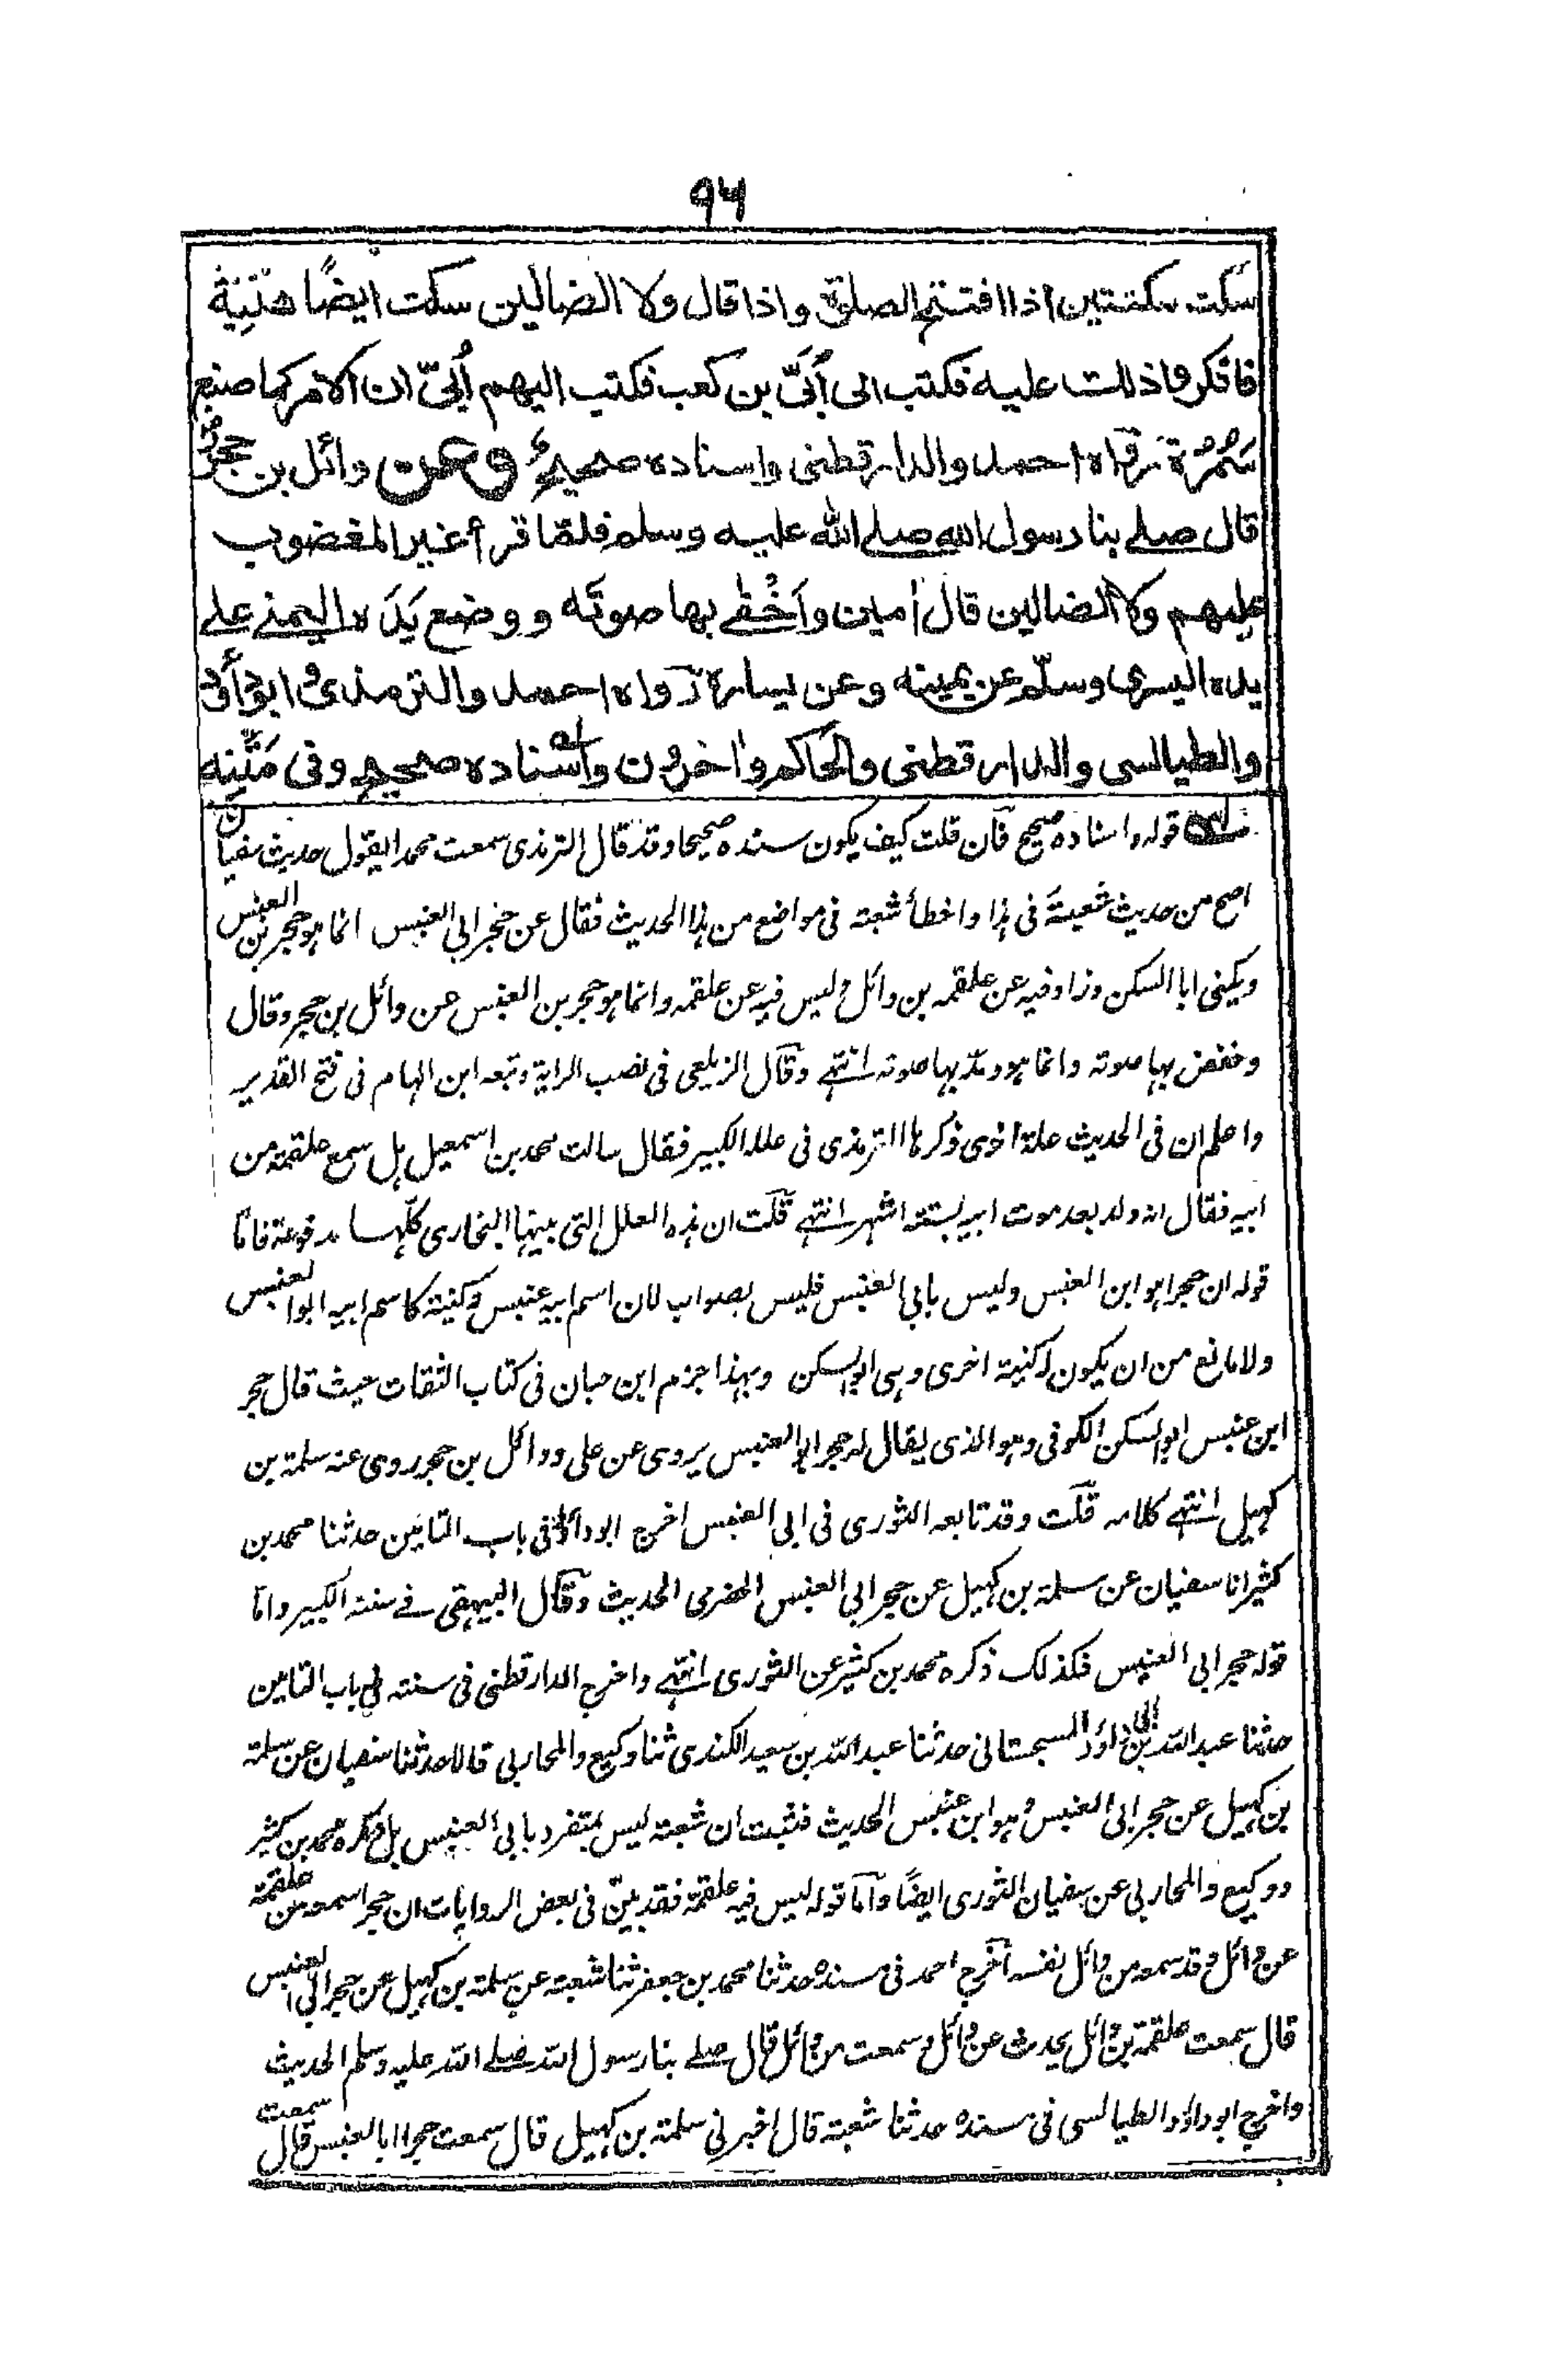 ٩٦
سكت سكتتين اذا افتتح الصلوة واذا قال ولا الضالين سكت ايضًا هُنَيَّةً
فانكروا ذلك عليه فكتب الى أُبَيّ بن كعب فكتب اليهم أُبَيّ ان الامر كما صنع
سَمُرَة رَوَاه احمد والدارقطنى واسناده صحيح وعن وائل بن حجر
قال صلے بنا رسول الله صلے الله عليه وسلم فلمّا قرأ غير المغضوب
عليهم ولا الضالين قال اٰمين واَخْفٰے بها صوتَه ووضع يَدَه اليمنے علے
يده اليسرى وسلّم عن يمينه وعن يساره رَوَاه احمد والترمذى وابوداؤد
والطيالسى والدارقطنى والحَاكم واٰخرون واسناده صحيح وفى مَتْنِه
قوله واسناده صحيح فان قلت كيف يكون سنده صحيحا وقد قال الترمذى سمعت محمدا يقول حديث سفيان
اصح من حديث شعبة فى هذا واخطأ شعبة فى مواضع من هذا الحديث فقال عن حجر ابى العنبس انما هو حجر بن العنبس
ويكنى ابا السكن وزاد فيه عن علقمه بن وائل وليس فيه عن علقمه وانما هو حجر بن العنبس عن وائل بن حجر وقال
وخفض بها صوته وانما هو ومدّ بها صوته انتهے وقال الزيلعى فى نصب الراية وتبعه ابن الهمام فى فتح القدير
واعلم ان فى الحديث علة اخرى ذكرها الترمذى فى علله الكبير فقال سالت محمد بن اسمعيل هل سمع علقمة من
ابيه فقال انه ولد بعد موت ابيه بستة اشهر انتهے قلت ان هذه العلل التى بينها البخارى كلّها مدفوعة فامّا
قوله ان حجرا هو ابن العنبس وليس بابى العنبس فليس بصواب لان اسم ابيه عنبس وكنيته كاسم ابيه ابو العنبس
ولا مانع من ان يكون له كنية اخرى وهى ابو السكن وبهذا جزم ابن حبان فى كتاب الثقات حيث قال حجر
ابن عنبس ابو السكن الكوفى وهو الذى يقال له حجر ابو العنبس يروى عن على ووائل بن حجر روى عنه سلمة بن
كهيل انتهے كلامه قلت وقد تابعه الثورى فى ابى العنبس اخرج ابوداؤد فى باب التامين حدثنا محمد بن
كثير انا سفيان عن سلمة بن كهيل عن حجر ابى العنبس الحضرمى الحديث وقال البيهقى فے سننه الكبير وامّا
قوله حجر ابى العنبس فكذلك ذكره محمد بن كثير عن الثورى انتهے واخرج الدارقطنى فى سننه فى باب التامين
حدثنا عبد الله بن ابى داؤد السجستانى حدثنا عبد الله بن سعيد الكندى ثنا وكيع والمحاربى قالا حدثنا سفيان عن سلمة
بن كهيل عن حجر ابى العنبس وهو ابن عنبس الحديث فثبت ان شعبة ليس بمتفرد بابى العنبس بل ذكره محمد بن كثير
ووكيع والمحاربى عن سفيان الثورى ايضًا وامّا قوله ليس فيه علقمة فقد بيّن فى بعض الروايات ان حجرا سمعه من علقمة
عن وائل وقد سمعه من وائل نفسه اخرج احمد فى مسنده حدثنا محمد بن جعفر ثنا شعبة عن سلمة بن كهيل عن حجر ابى العنبس
قال سمعت علقمة بن وائل يحدث عن وائل وسمعت من وائل قال صلے بنا رسول الله صلے الله عليه وسلم الحديث
واخرج ابوداؤد الطيالسى فى مسنده حدثنا شعبة قال اخبرنى سلمة بن كهيل قال سمعت حجرا ابا العنبس قال سمعت